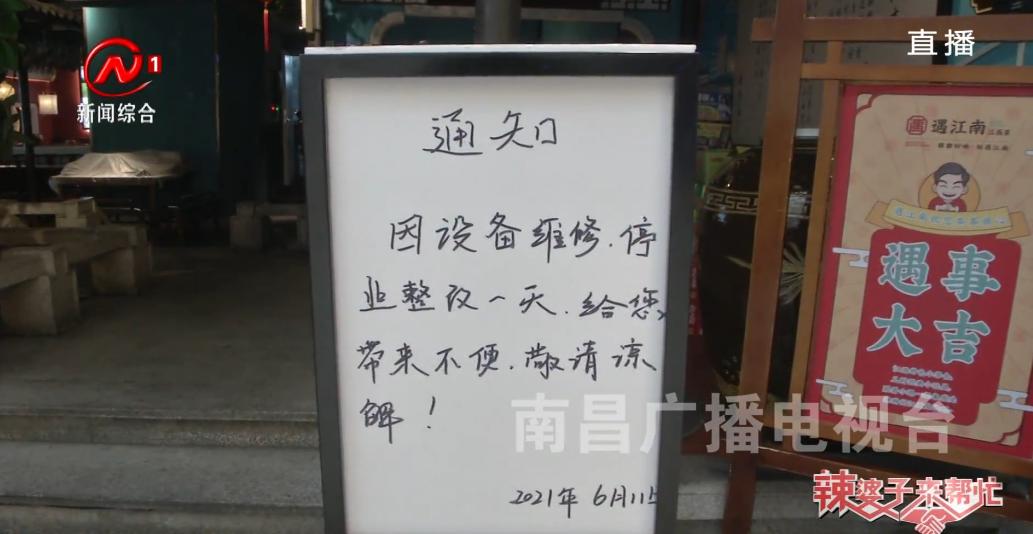 1
新闻综合
直播
通知
因设备维修.停
业整改一天.给您
带来不便.敬请谅
解！
2021年6月11日
遇江南
遇事
大吉
南昌广播电视台
辣婆子来帮忙